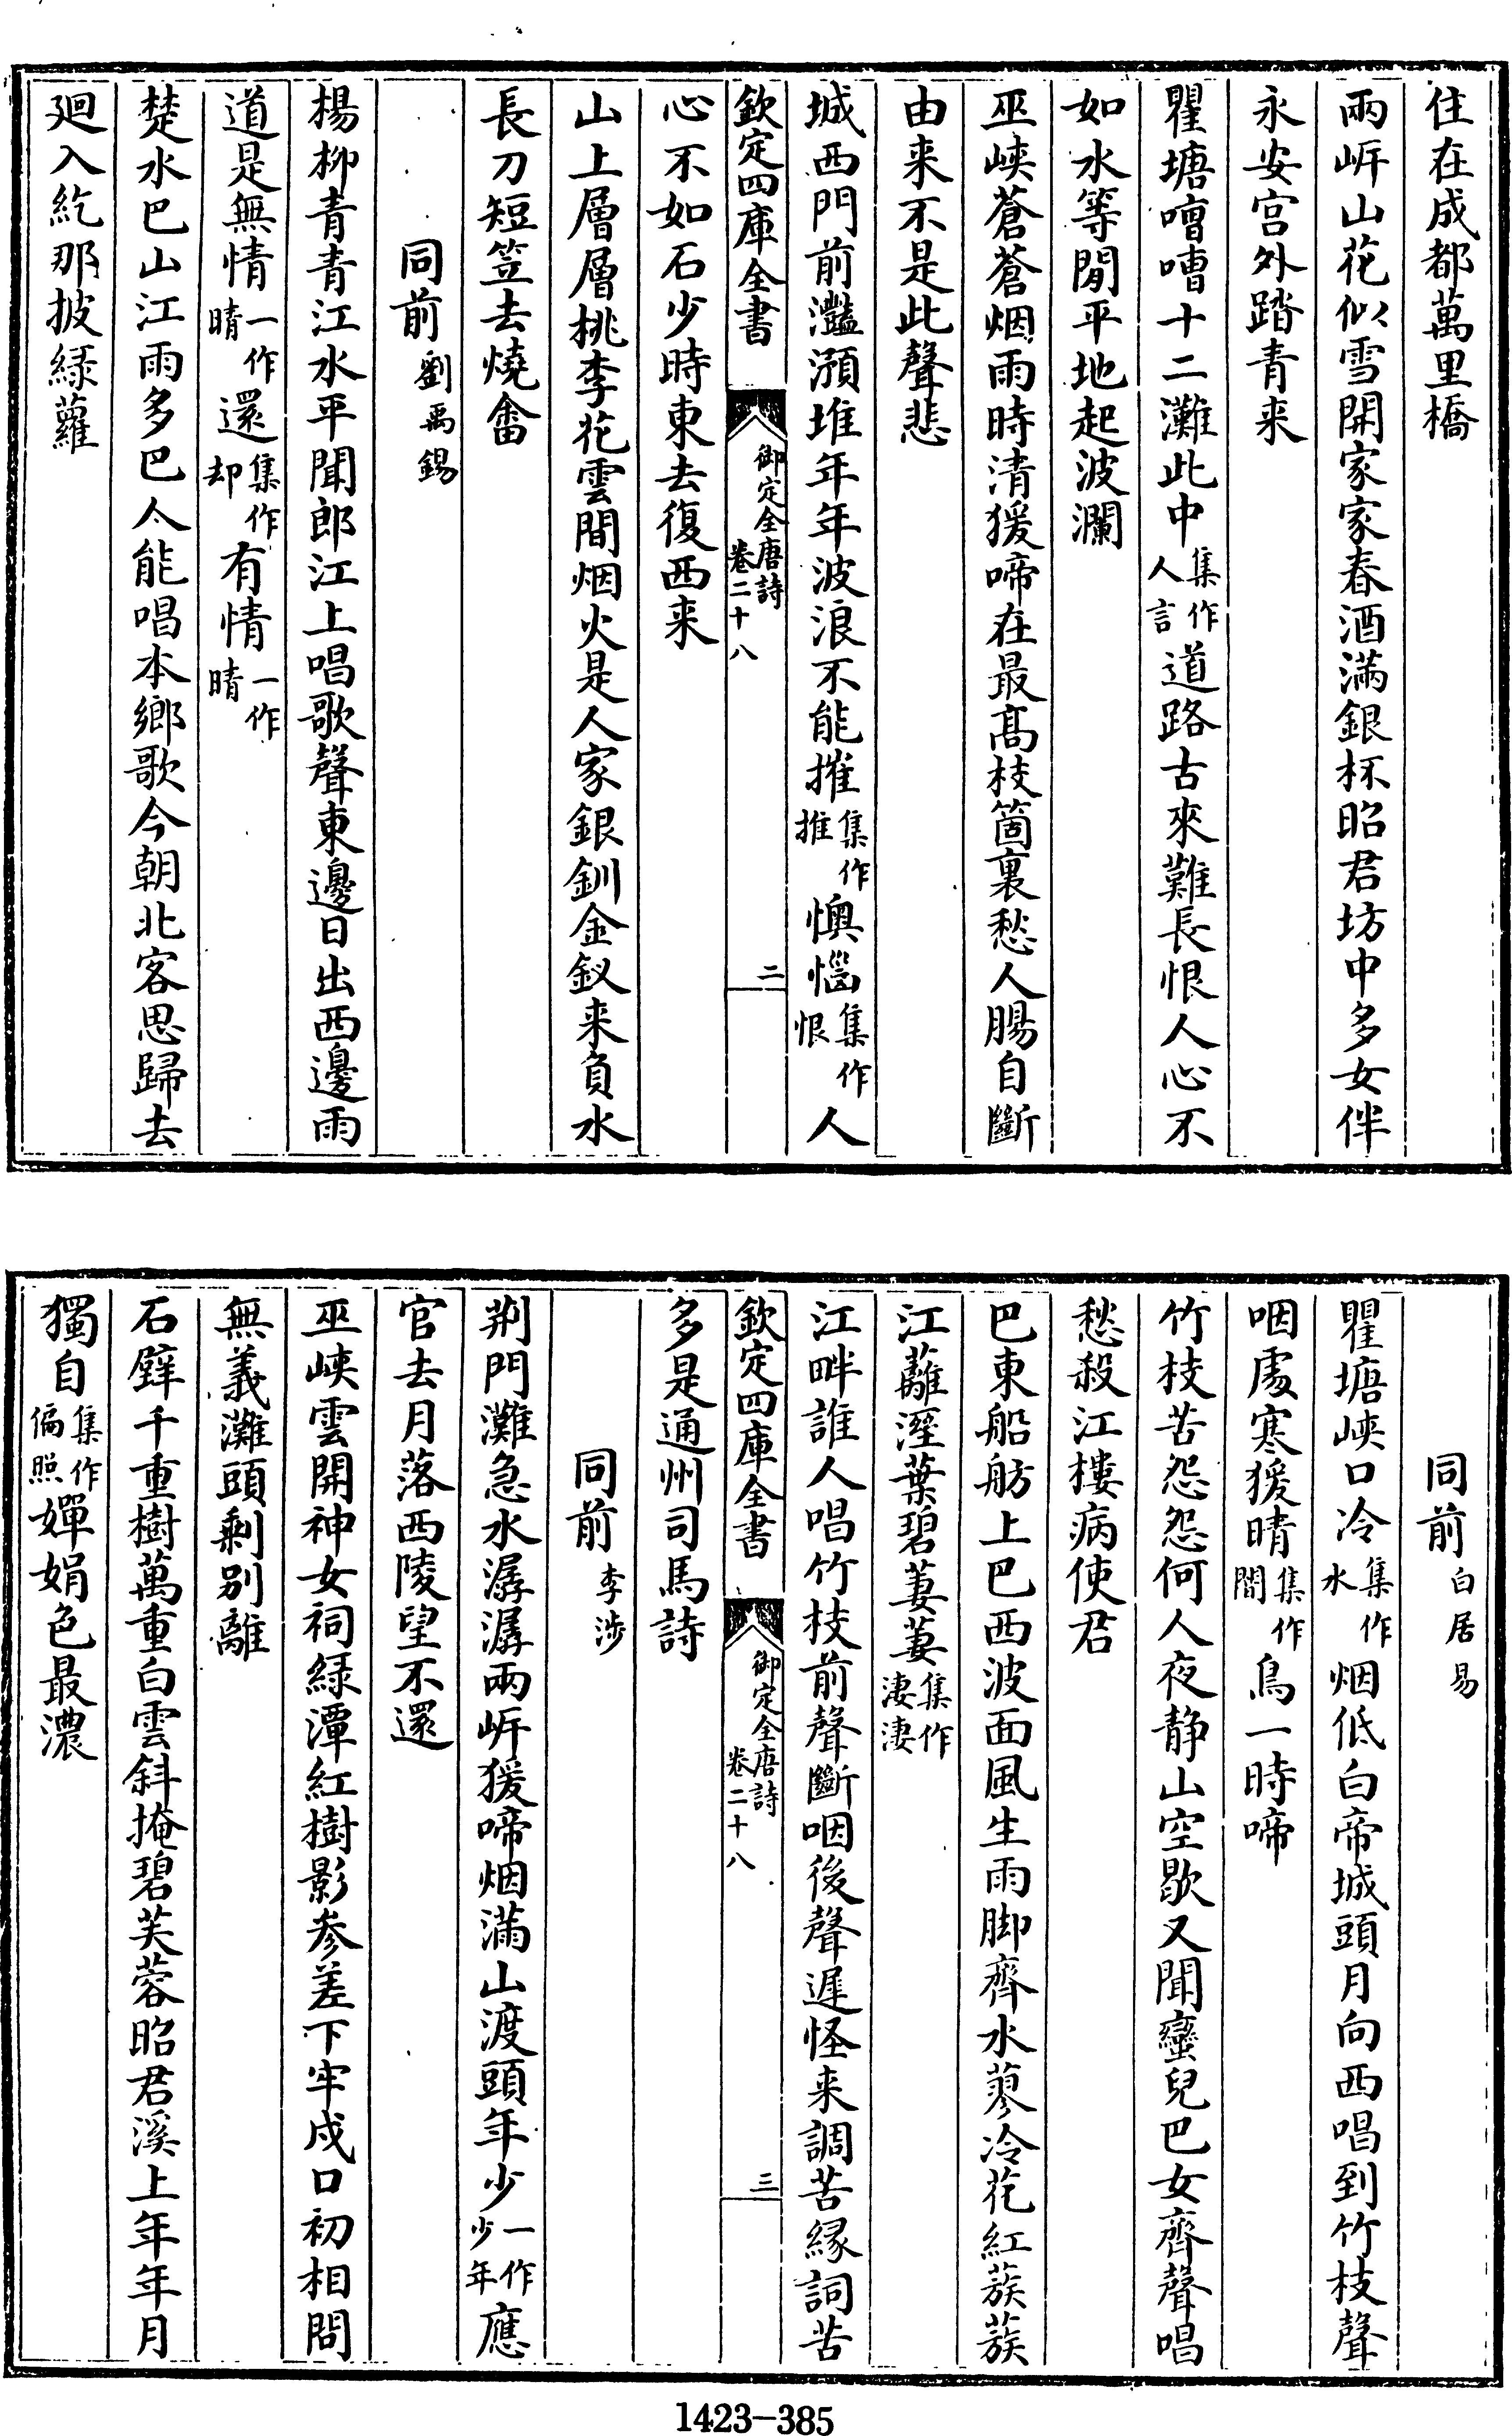 住在成都萬里橋
兩岍山花似雪開家家春酒滿銀杯昭君坊中多女伴
永安宫外踏青来
瞿塘嘈嘈十二灘此中集作人言道路古來難長恨人心不
如水等閒平地起波瀾
巫峽蒼蒼烟雨時清猨啼在最髙枝箇裏愁人腸自斷
由来不是此聲悲
城西門前灩澦堆年年波浪不能摧集作推懊惱集作恨人
欽定四庫全書 御定全唐詩卷二十八 二
心不如石少時東去復西来
山上層層桃李花雲間烟火是人家銀釧金釵来負水
長刀短笠去燒畬
同前劉禹錫
楊柳青青江水平聞郎江上唱歌聲東邊日出西邊雨
道是無情一作晴還集作却有情一作晴
楚水巴山江雨多巴人能唱本鄉歌今朝北客思歸去
廻入紇那披緑蘿
同前白居易
瞿塘峽口冷集作水烟低白帝城頭月向西唱到竹枝聲
咽處寒猨晴集作闇鳥一時啼
竹枝苦怨怨何人夜静山空歇又聞蠻兒巴女齊聲唱
愁殺江樓病使君
巴東船舫上巴西波面風生雨脚齊水蓼冷花紅蔟蔟
江蘺溼葉碧萋萋集作淒淒
江畔誰人唱竹枝前聲斷咽後聲遲怪来調苦緣詞苦
欽定四庫全書 御定全唐詩卷二十八 三
多是通州司馬詩
同前李涉
荆門灘急水潺潺兩岍猨啼烟滿山渡頭年少一作少年應
官去月落西陵望不還
巫峽雲開神女祠緑潭紅樹影參差下牢戍口初相問
無義灘頭剩别離
石壁千重樹萬重白雲斜掩碧芙蓉昭君溪上年年月
獨自集作偏照嬋娟色最濃
1423-385